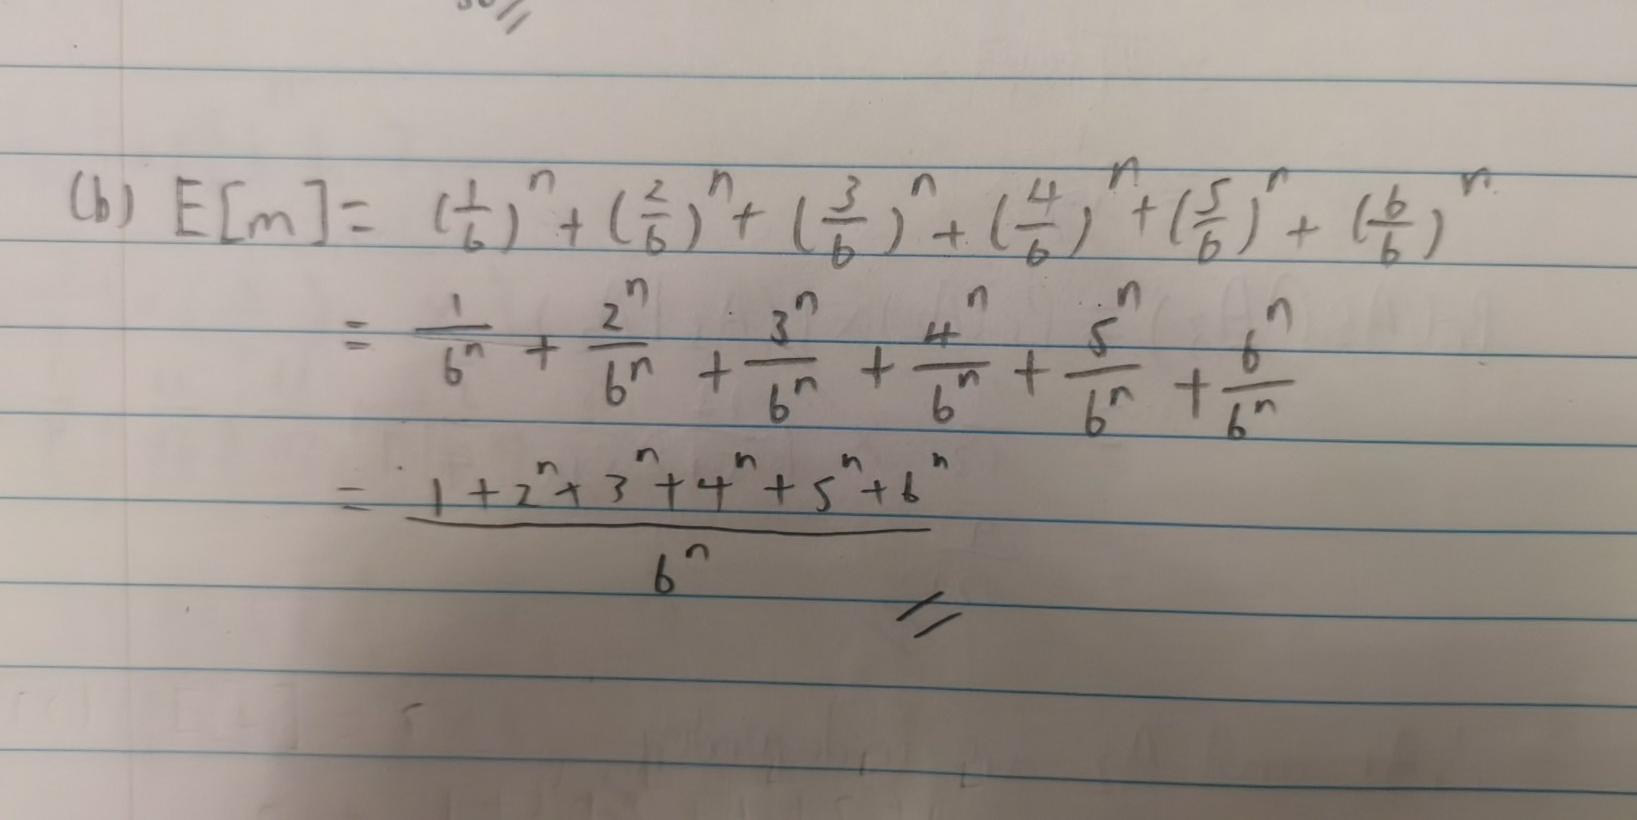 (b) E[m] = (1/6)^n + (2/6)^n + (3/6)^n + (4/6)^n + (5/6)^n + (6/6)^n
= 1/6^n + 2^n/6^n + 3^n/6^n + 4^n/6^n + 5^n/6^n + 6^n/6^n
= (1 + 2^n + 3^n + 4^n + 5^n + 6^n)/6^n //